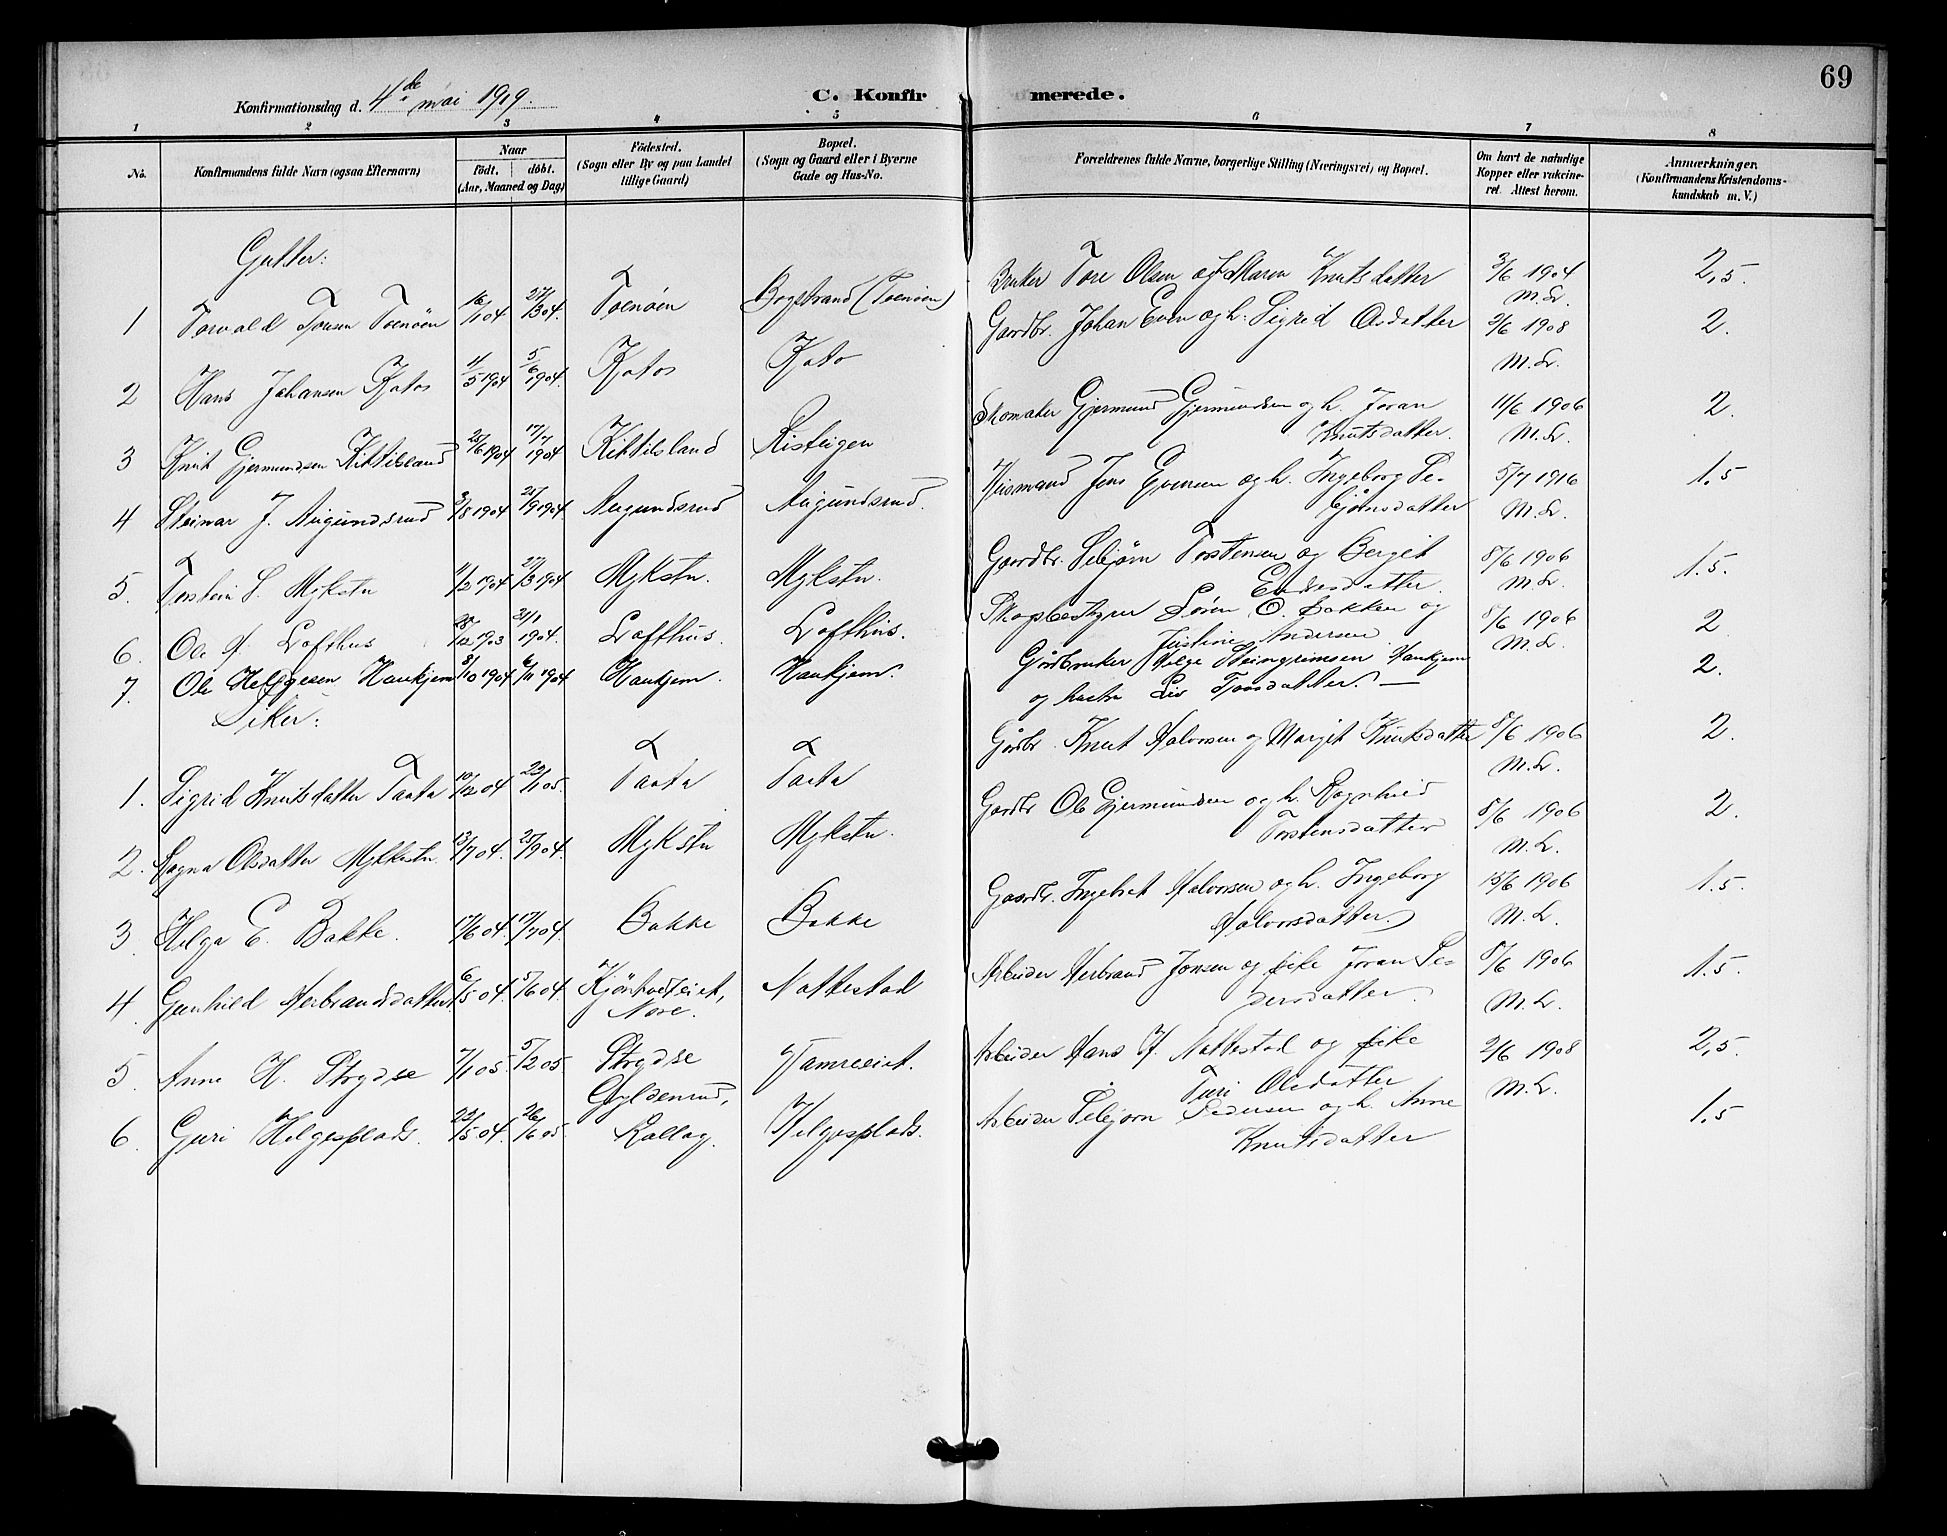 69
Konfirmationsdag d. 4de mai 1919.
C. Konfirmerede.
1 2 3 4 5 6 7 8
No. Konfirmandens fulde Navn (ogsaa Efternavn) Naar födt. döbt. (Aar, Maaned og Dag) Födested. (Sogn eller By og paa Landet tillige Gaard) Bopæl. (Sogn og Gaard eller i Byerne Gade og Hus-No. Forældrenes fulde Navne, borgerlige Stilling (Næringsvei) og Bopæl. Om havt de naturlige Kopper eller vakcineret. Attest herom. Anmærkninger. (Konfirmandens Kristendomskundskab m. V.)
Gutter:
1 Torvald Toresen Toenöen 16/1 04 27/3 04. Toenöen Bogstrand (Toenöen) Bruker Tore Olsen og h. Maren Knutsdatter 3/6 1904 M.Lr. 2,5.
2 Hans Johansen Kjatos 11/5 1904 5/6 1904. Kjatos Kjato Gardbr. Johan Even og h. Sigrid Osdatter 2/6 1908 M.Lr. 2.
3 Knut Gjermundsen Kittilsland 25/6 1904 17/7 1904 Kittilsland Risteigen Skomaker Gjermund Gjermundsen og h. Joran
Knutsdatter. 11/6 1906 M.Lr. 2.
4 Steinar J. Augundsrud 3/8 1904 25/9 1904. Augundsrud Augundsrud. Husmand Jens Evensen og h. Ingeborg Se-
bjönsdatter 5/7 1916 M.Lr. 1.5
5. Torstein S. Mykstu 11/2 1904 27/3 1904 Mykstu. Mykstu. Gardbr. Sebjörn Torstensen og Berget
Endresdatter. 8/6 1906 M.Lr. 1.5.
6. Ole S. Lofthus 28/12 1903 31/1 1904. Lofthus. Lofthus. Skogbestyrer Sören O. Bakken og
Justine Andersen 8/6 1906 M.L. 2
7. Ole Helgesen Haukjem 8/10 1904 6/11 1904 Haukjem. Haukjem. Gårbruker Helge Steingrimsen Haukjem
og hustru Liv Torsdatter. — 2.
Piker:
1. Sigrid Knutsdatter Taata 10/12 04 22/1 05. Taata Taata Gårdbr. Knut Halvorsen og Margit Knutsdatter 8/6 1906 M.Lr. 2
2. Ragna Olsdatter Mykstu. 13/7 04. 25/9 04. Mykstu Mykstu. Gardbr Ole Gjermundsen og h. Ragnhild
Torstensdatter 8/6 1906 M.L. 2.
3. Helga E. Bakke. 17/6 04. 17/7 04. Bakke Bakke Gaardbr. Ingebret Halvorsen og h. Ingeborg
Halvorsdatter. 15/6 1906 M.L. 1.5.
4. Gunhild Herbrandsdatter. 6/5 04 5/6 04. Nore. Nattestad Arbeider Herbrand Jonsen og pike Joran Pe-
dersdatter. 8/6 1906 M.L. 1.5.
5. Anne H. Strydse 7/1 05. 5/2 05 Strydse Arbeider Hans H. Nattestad og pike
Turi Olsdatter 2/6 1908 M.L. 2,5.
6. Guri Helgesplads. 22/5 04. 26/6 05. Gyldenrud,
Rollag. Helgesplads. Arbeider Sebjorn Pedersen og h. Anne
Knutsdatter 1.5